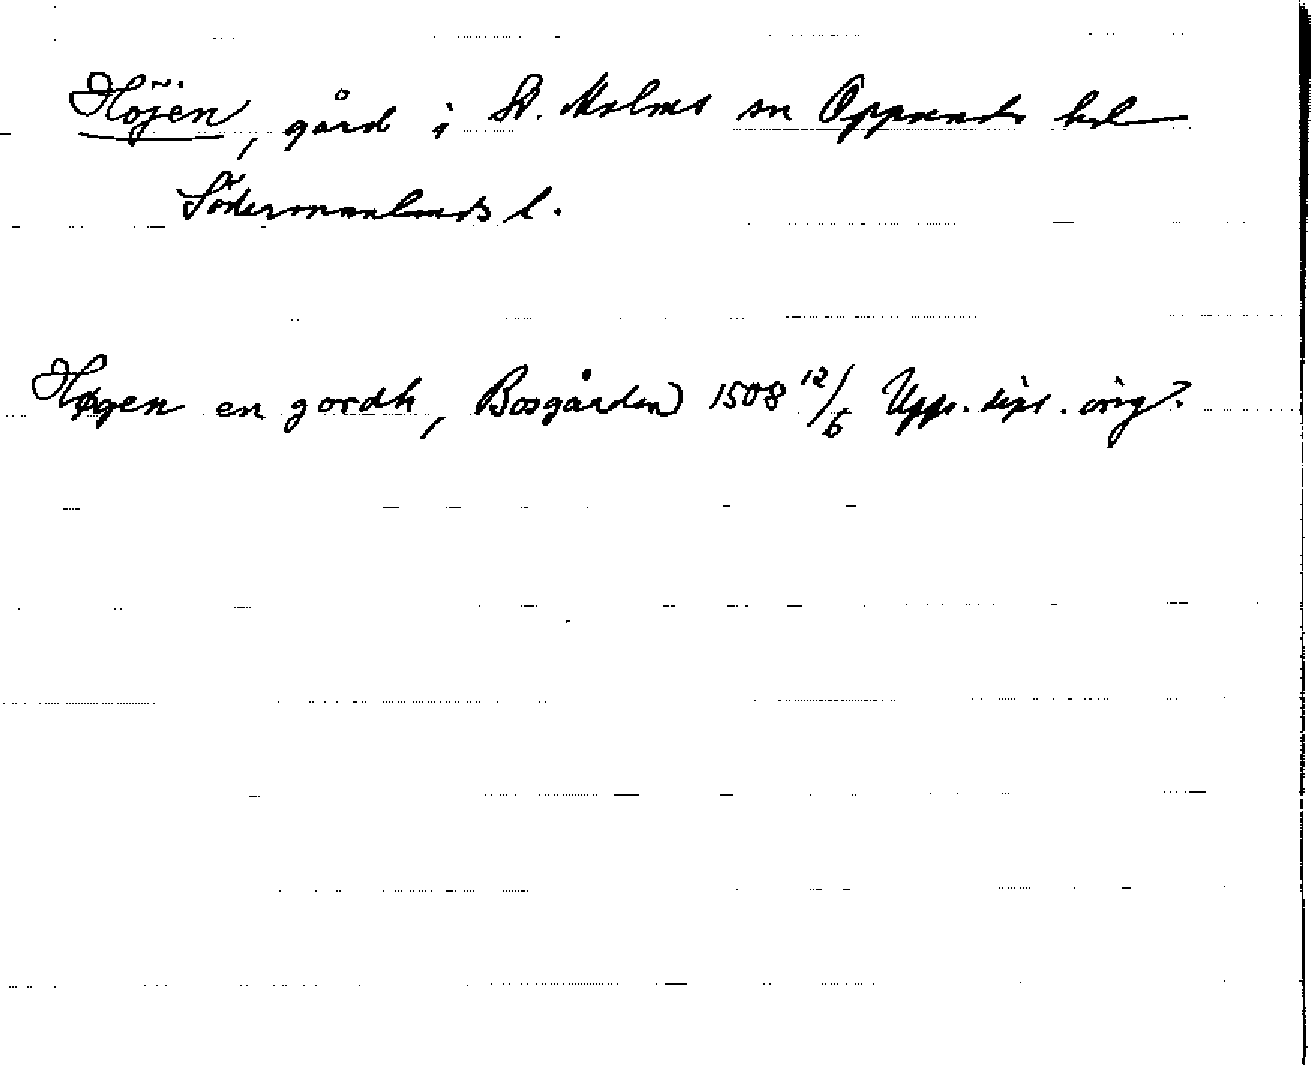 Höjen, gård i St. Malms sn Oppunda hd
Södermanlands l.
Høgen en gordh, Bosgården) 1508 12/6 Upps. dipl. orig.